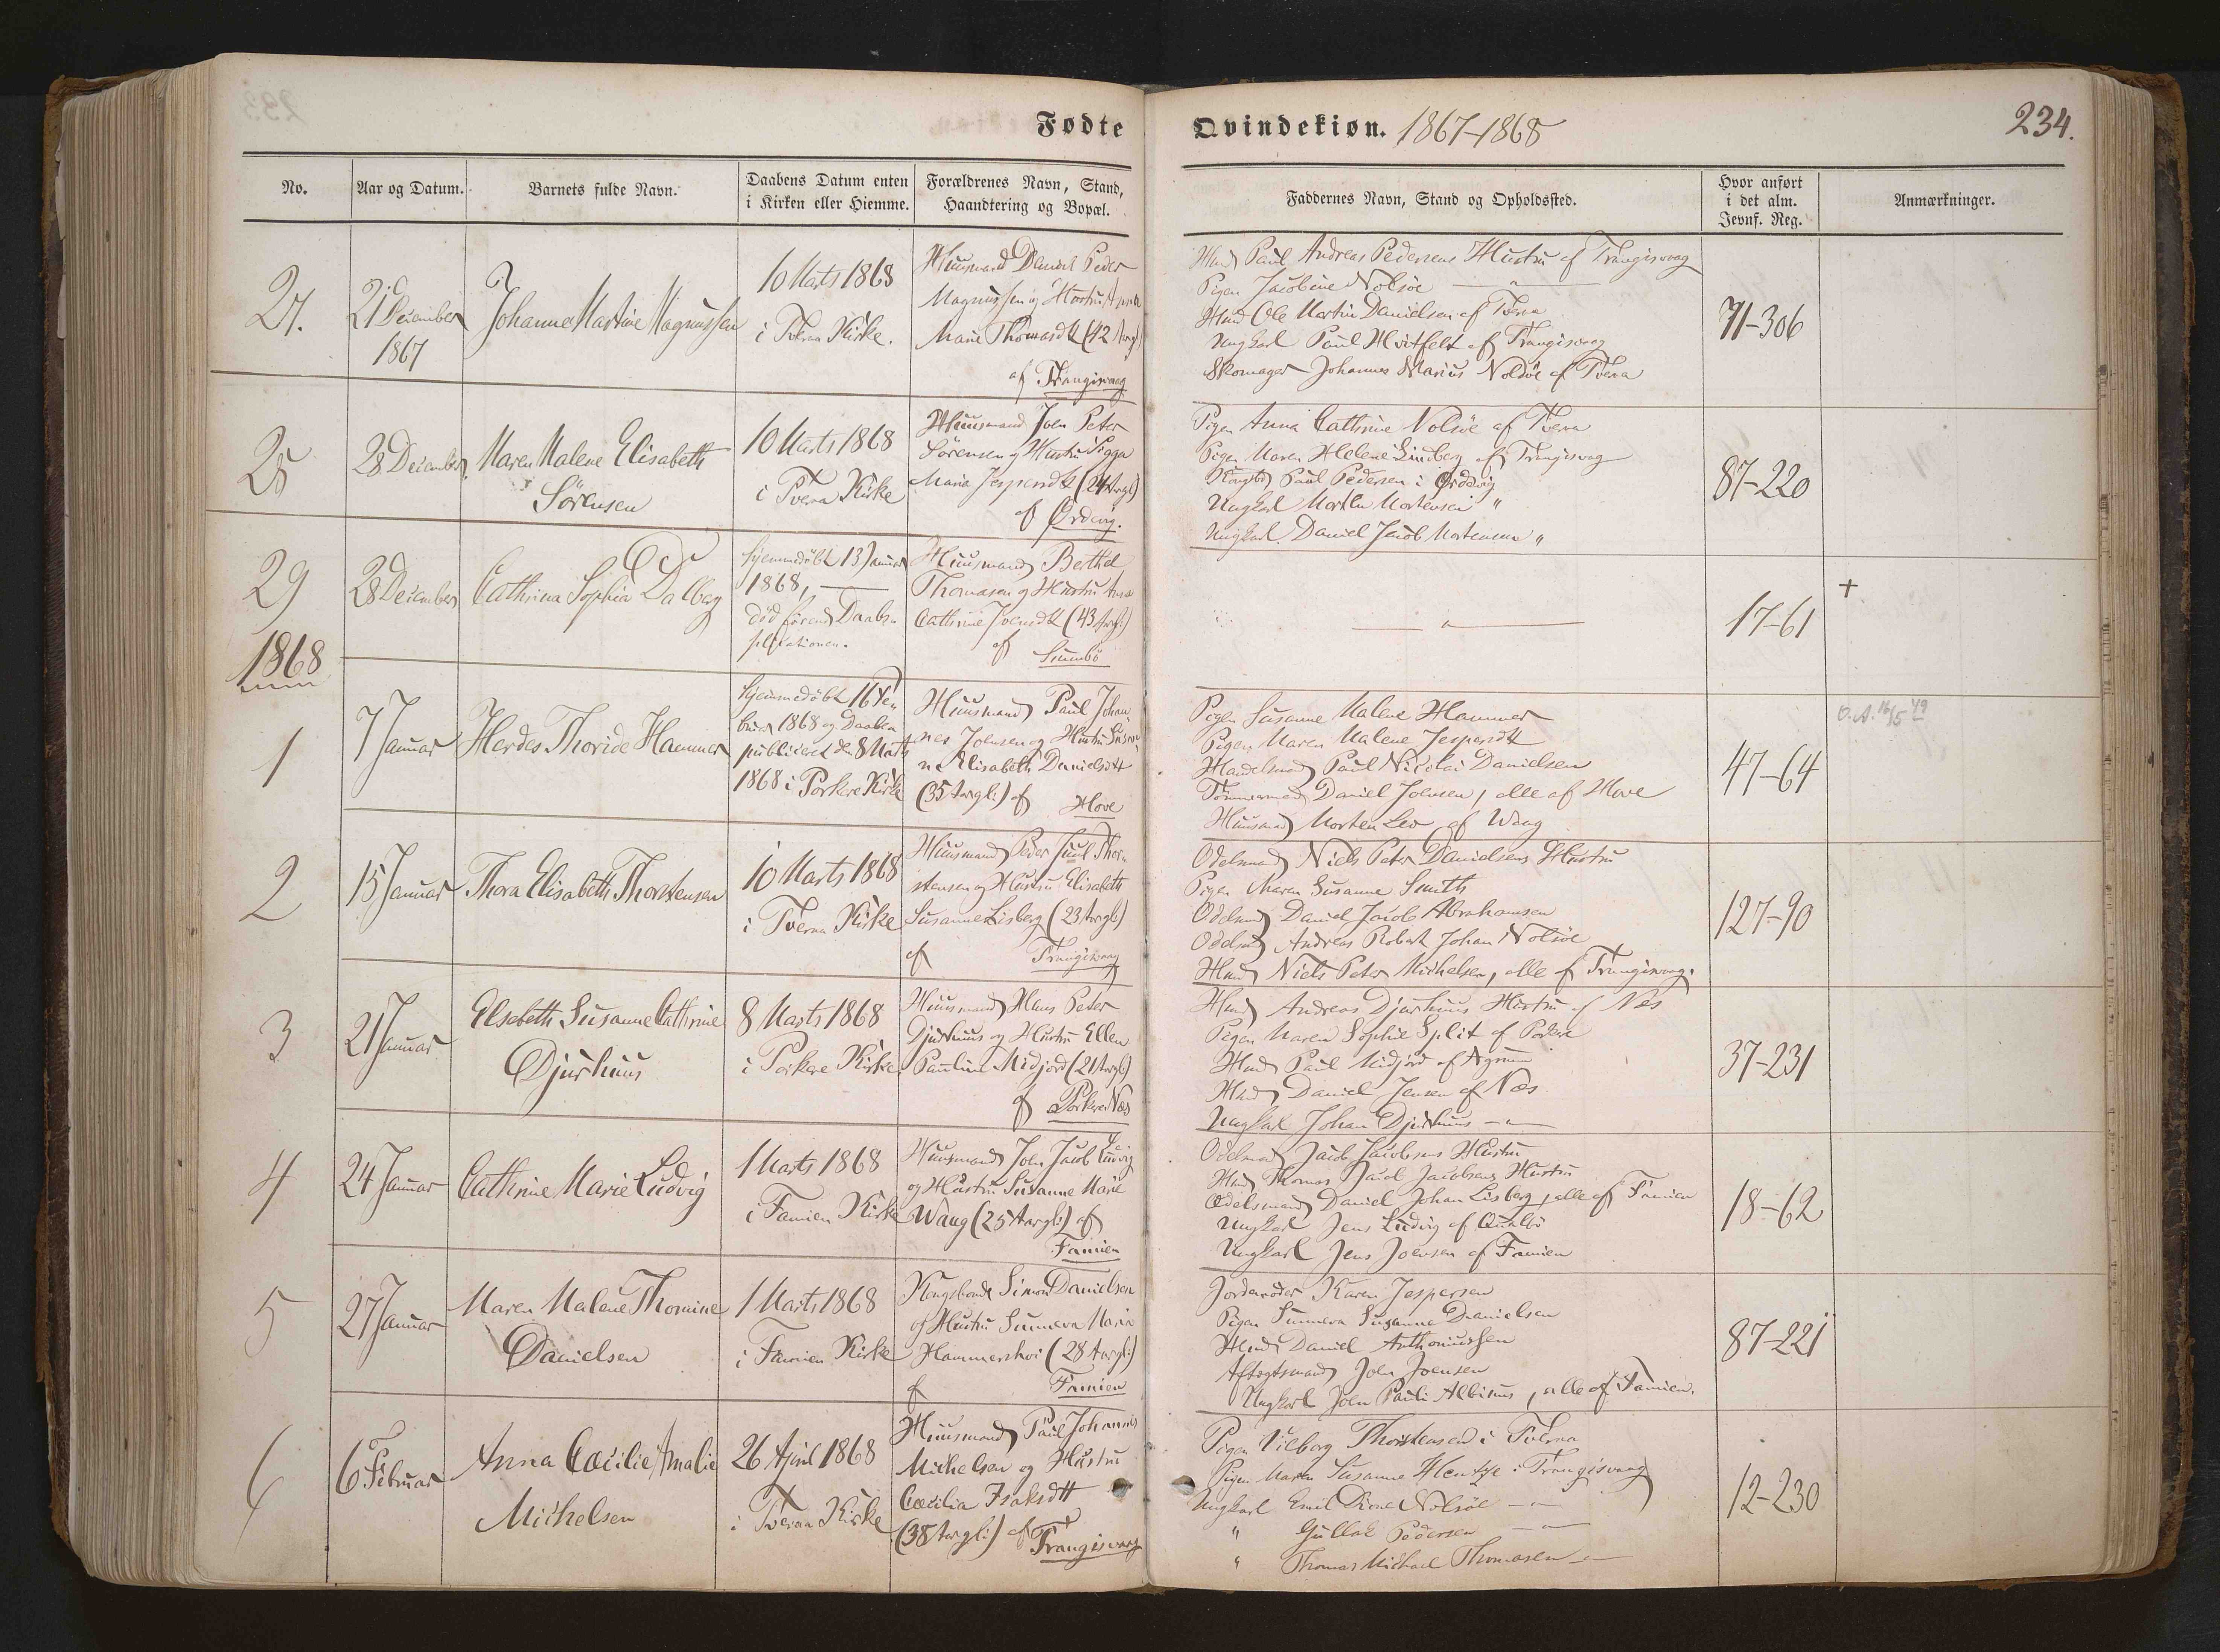 Fødte
Qvindekiøn. 1867-1868
234.
No.
Aar og Datum.
Barnets fulde Navn.
Daabens Datum enten
i Kirken eller Hiemme.
Forældrenes Navn, Stand,
Haandtering og Bopæl.
Faddernes Navn, Stand og Opholdssted.
Hvor anført
i det alm.
Jevnf. Reg.
Anmærkninger.
27.
21 December
1867
Johanne Martine Magnussen
10 Marts 1868
i Tveraa Kirke.
Huusmand Daniel Peder
Magnussen og Hustru Anna
Marie Thomasdtt (42 Aargl)
af Trangisvaag
Hmd Paul Andreas Pedersens Hustru af Trangisvaag
Pigen Jacobine Nolsöe — " —
Hmd Ole Martin Danielsen af Tveraa
Ungkarl Paul Hvitfelt af Trangisvaag
Skomager Johannes Marius Nolsöe af Tveraa
71-306
28
28 December
Maren Malene Elisabeth
Sörensen
10 Marts 1868
i Tveraa Kirke
Huusmand Joen Peter
Sörensen og Hustru Sigga
Maria Jespersdtt (24 Aargl)
af Ördevig.
Pigen Anna Cathrine Nolsöe af Tveraa
Pigen Maren Helene Lindberg af Trangisvaag
Paul Pedersen i Ördevig
Ungkarl Morten Mortensen "
Ungkarl Daniel Jacob Mortensen "
87-220
29
28 December
Cathrina Sophia Dalberg
Hjemmedöbt 13 Januar
1868, —
död förend Daabs-
publikationen.
Huusmand Berthel
Thomasen og Hustru Anna
Cathrine Joensdtt (43 Aargl:)
af Sumbö
— " —
17-61
+
1868
1
7 Januar
Herdes Thoride Hammer
Hjemmedöbt 16 Fe-
bruar 1868 og Daaben
publiceret den 8 Marts
1868 i Porkere Kirke
Huusmand Paul Johan
nes Joensen og Hustru Susan-
ne Elisabeth Danielsdtt
(35 Aargl:) af Hove
Pigen Susanne Malene Hammer
Pigen Maren Malene Jespersdtt
Handelsmand Paul Nicolai Danielsen
Tömmermand Daniel Joensen, alle af Hove
Huusmand Morten Leo af Waag
47-64
O.A. 16/5 49
2
15 Januar
Thora Elisabeth Thorstensen
10 Marts 1868
i Tveraa Kirke
Huusmand Peder Juul Thor-
stensen og Hustru Elisabeth
Susanne Lisberg (23 Aargl:)
af Trangisvaag
Odelsmand Niels Peter Danielsens Hustru
Pigen Maren Susanne Smith
Odelsmd Daniel Jacob Abrahamsen
Odelsmd Andreas Robert Johan Nolsöe
Hmd Niels Peter Michelsen, alle af Trangisvaag.
127-90
3
21 Januar
Elsebeth Susanne Cathrine
Djurhuus
8 Marts 1868
i Porkere Kirke
Huusmand Hans Peter
Djurhuus og Hustru Ellen
Pauline Midjord (21 Aargl)
af Porkere Næs
Hmd Andreas Djurhuus Hustru af Næs
Pigen Maren Sophie Split af Porkere
Hmd Paul Midjord af
Hmd Daniel Jensen af Næs
Ungkarl Johan Djurhuus — " —
37-231
4
24 Januar
Cathrine Marie Ludvig
1 Marts 1868
i Famien Kirke
Huusmand Joen Jacob Ludvig
og Hustru Susanne Marie
Waag (25 Aargl:) af
Famien
Odelsmand Jacob Jacobsens Hustru
Hmd Thomas Jacob Jacobsens Hustru
Odelsmand Daniel Johan Lisberg, alle af Famien
Ungkarl Jens Ludvig af Qvalbö
Ungkarl Jens Joensen af Famien
18-62
5
27 Januar
Maren Malene Thomine
Danielsen
1 Marts 1868
i Famien Kirke
Kongsbonde Simon Danielsen
og Hustru Sunneva Maria
Hammershoi (28 Aargl:)
af Famien
Jordemoder Karen Jespersen
Pigen Sunneva Susanne Danielsen
Hmd Daniel Anthoniussen
Aftægtsmand Joen Joensen
Ungkarl Joen Pauli Albinus, alle af Famien.
87-221
6
6 Februar
Anna Cæcilie Amalie
Michelsen
26 April 1868
i Tveraa Kirke
Huusmand Paul Johannes
Michelsen og Hustru
Cæcilia Isaksdtt
(38 Aargl:) af Trangisvaag
Pigen Vilborg Thorstensen i Tveraa
Pigen Maren Susanne Hentze i Trangisvaag
Ungkarl Emil Nolsöe — " —
" Gullak Pedersen — " —
" Thomas Michael Thomasen — " —
12-230